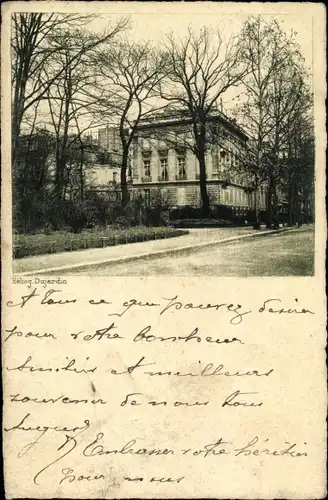 Héliog. Dujardin
A tous ce que pouvez désirer
pour votre bonheur
Amitiés et meilleurs
souvenir de nous tous
Auguste
Embrasser votre héritier
pour nous